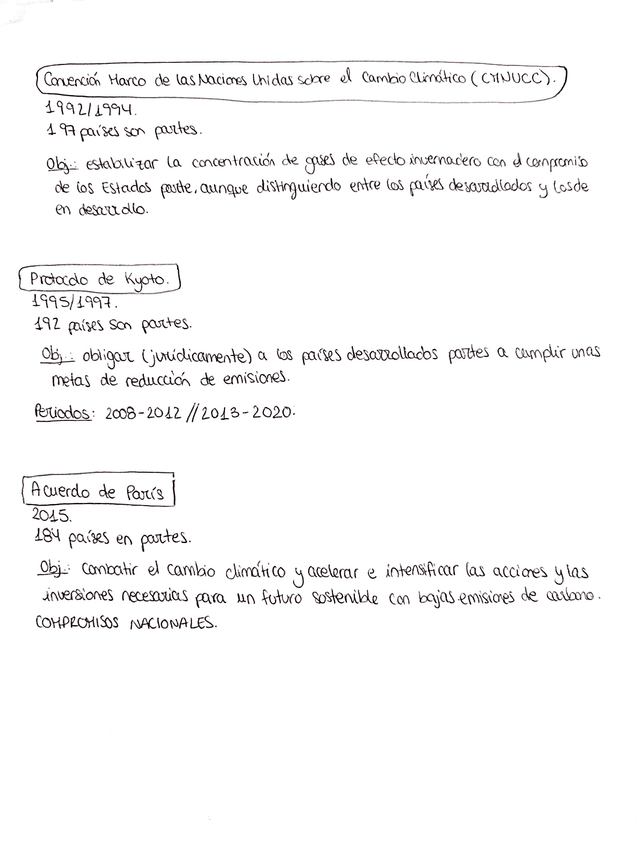 Convención Marco de las Naciones Unidas sobre el Cambio Climático (CMNUCC).
1992/1994.
197 países son partes.
Obj.: estabilizar la concentración de gases de efecto invernadero con el compromiso
de los Estados parte, aunque distinguiendo entre los países desarrollados y los de
en desarrollo.
Protocolo de Kyoto.
1995/1997.
192 países son partes.
Obj.: obligar (jurídicamente) a los países desarrollados partes a cumplir unas
metas de reducción de emisiones.
Periodos: 2008-2012 // 2013-2020.
Acuerdo de París
2015.
184 países en partes.
Obj: combatir el cambio climático y acelerar e intensificar las acciones y las
inversiones necesarias para un futuro sostenible con bajas emisiones de carbono.
COMPROMISOS NACIONALES.